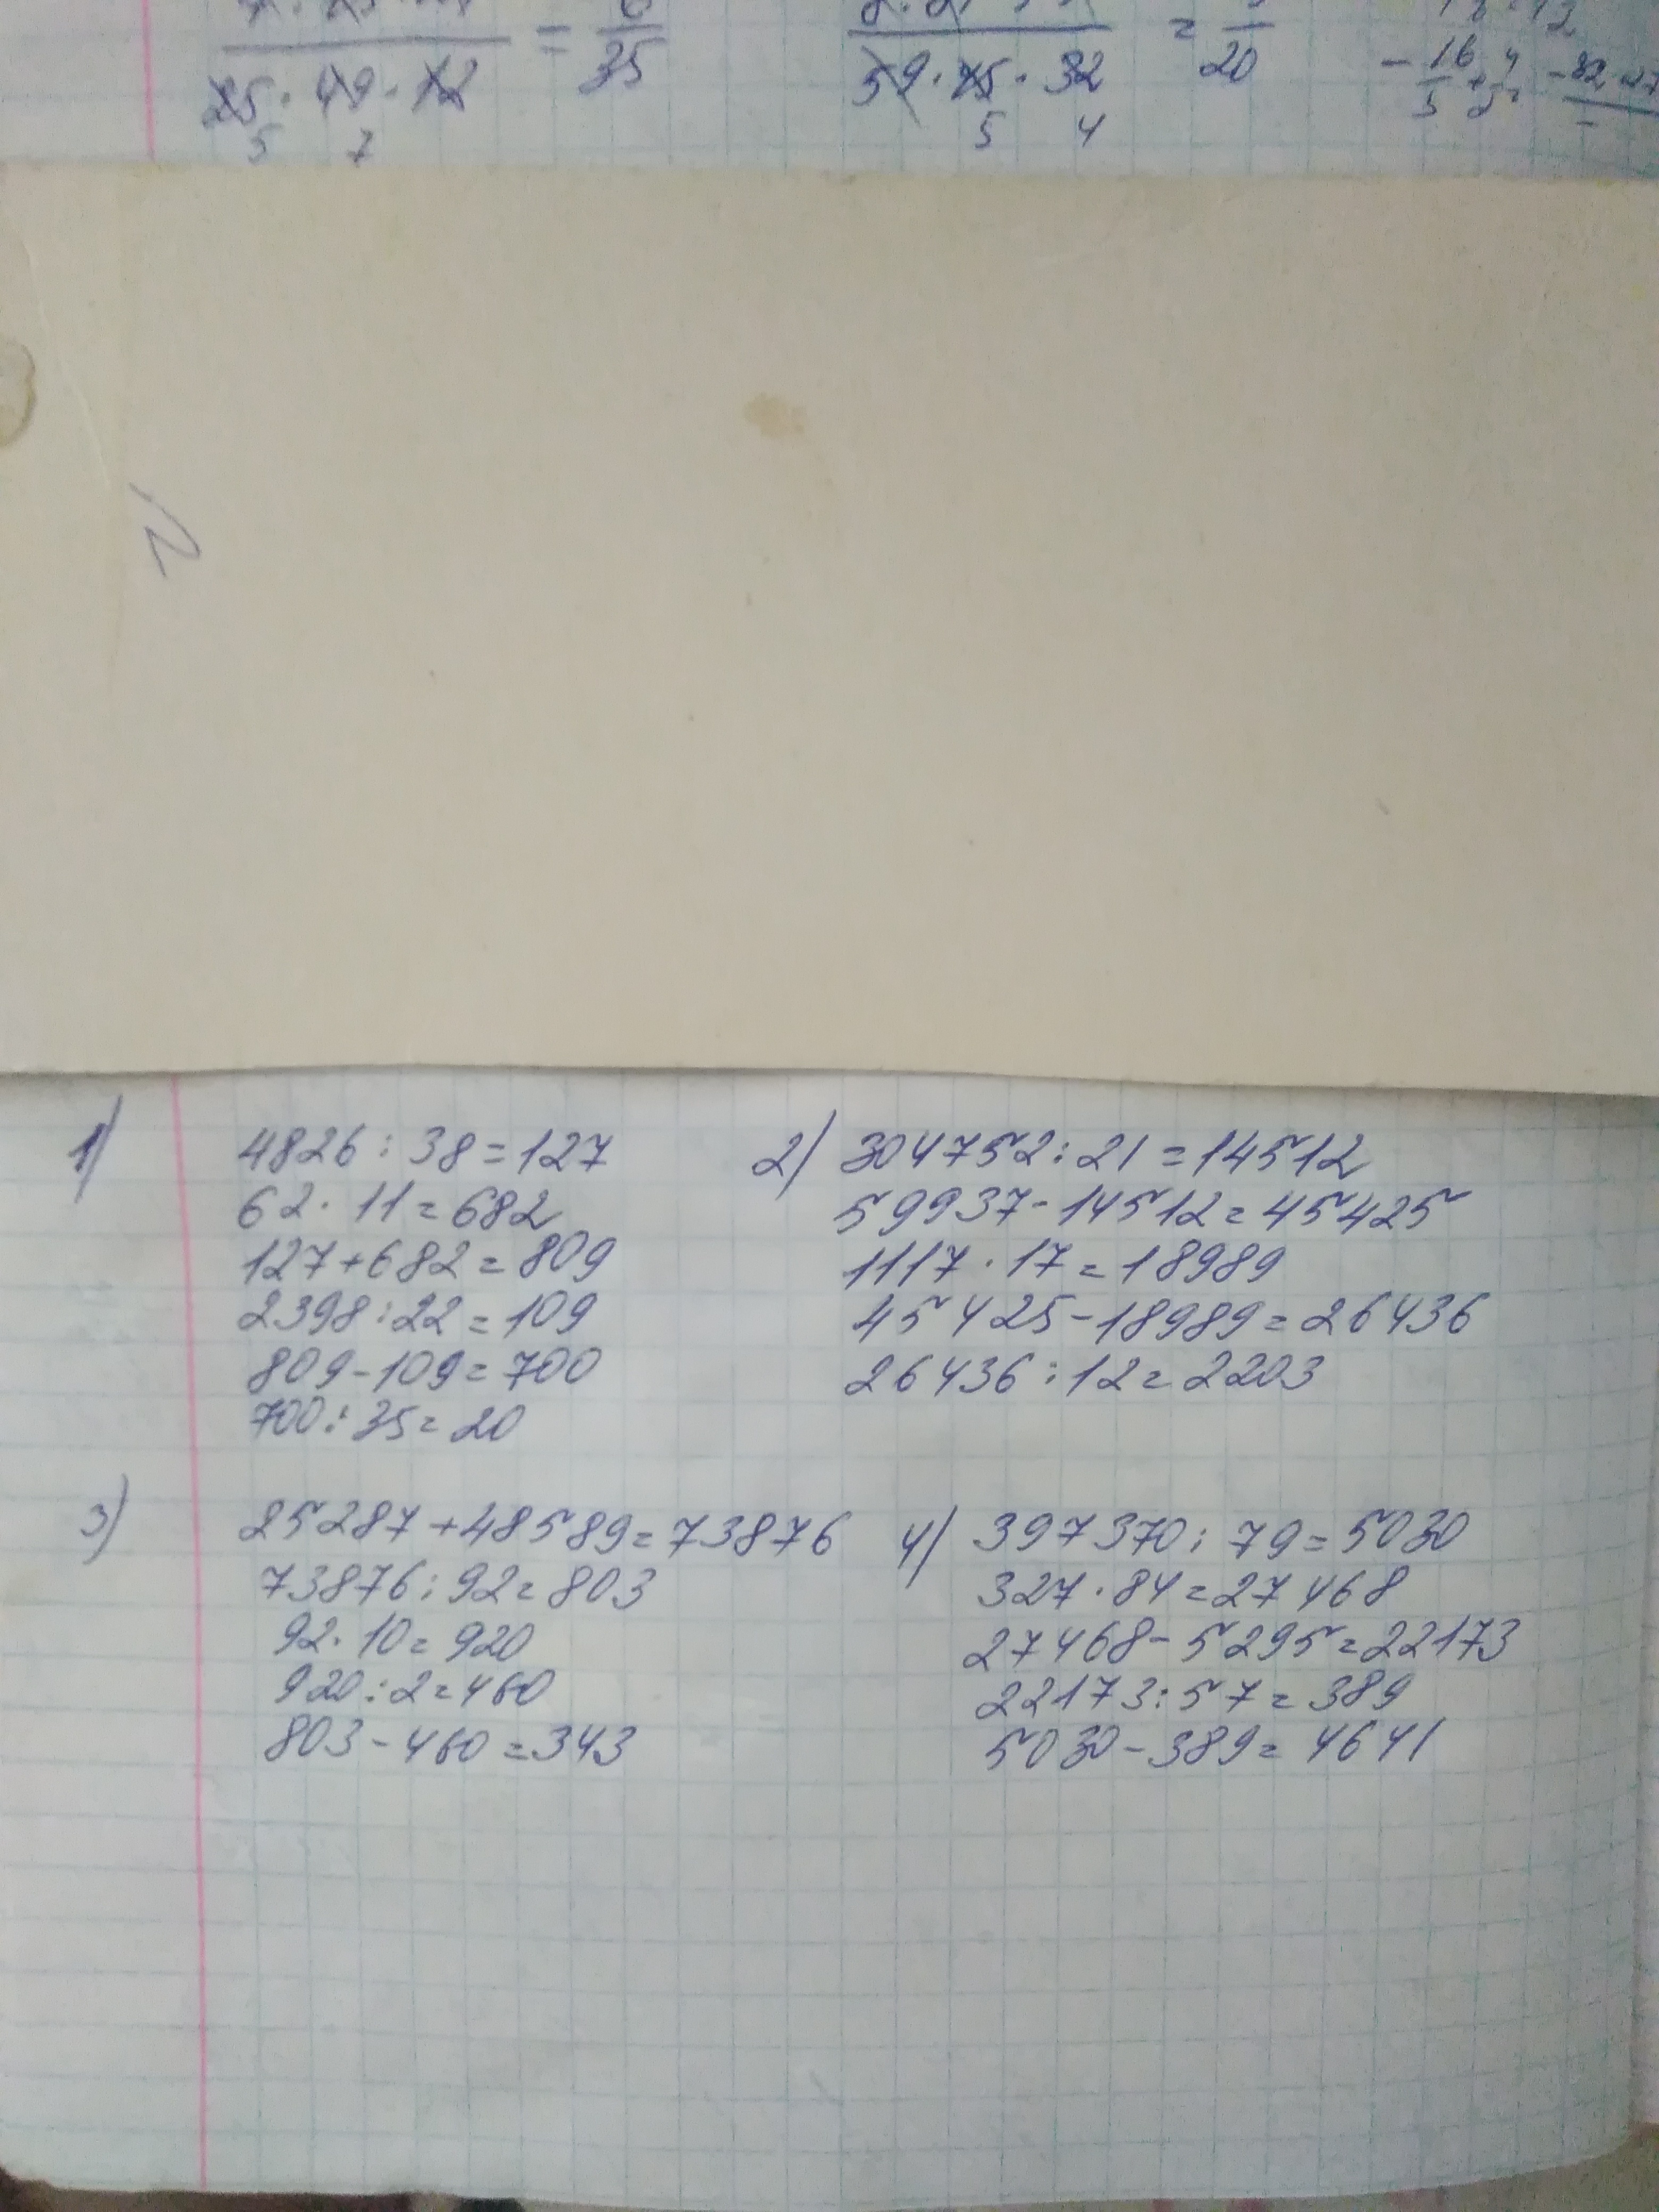 = 35
25 · 49 · 12
5 7
59 · 15 · 32 = 20
5 4
1) 4826 : 38 = 127
62 · 11 = 682
127 + 682 = 809
2398 : 22 = 109
809 - 109 = 700
700 : 35 = 20
2) 304752 : 21 = 14512
59937 - 14512 = 45425
1117 · 17 = 18989
45425 - 18989 = 26436
26436 : 12 = 2203
3) 25287 + 48589 = 73876
73876 : 92 = 803
92 · 10 = 920
920 : 2 = 460
803 - 460 = 343
4) 397370 : 79 = 5030
327 · 84 = 27468
27468 - 5295 = 22173
22173 : 57 = 389
5030 - 389 = 4641